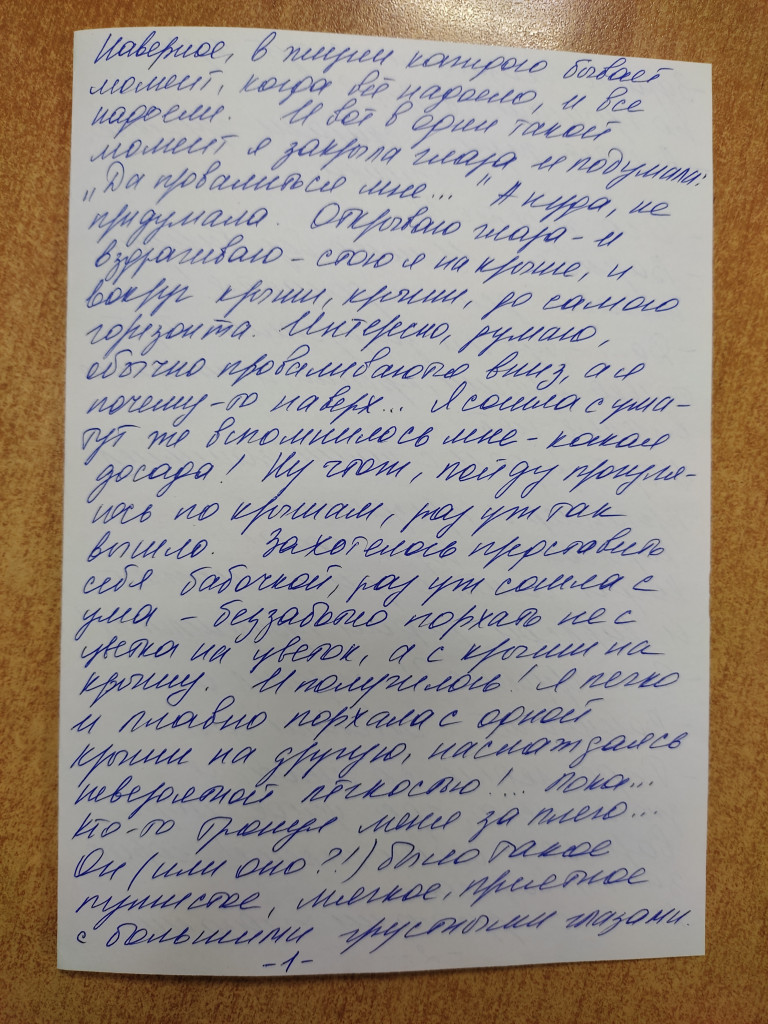 Наверное, в жизни каждого бывает
момент, когда всё надоело, и все
надоели. И вот в один такой
момент я закрыла глаза и подумала:
„Да провалиться мне..." А куда, не
придумала. Открываю глаза – и
вздрагиваю – стою я на крыше, и
вокруг крыши, крыши, до самого
горизонта. Интересно, думаю,
обычно проваливаются вниз, а я
почему-то наверх... Я сошла с ума –
тут же вспомнилось мне – какая
досада! Ну чтож, пойду прогуля-
юсь по крышам, раз уж так
вышло. Захотелось представить
себя бабочкой, раз уж сошла с
ума – беззаботно порхать не с
цветка на цветок, а с крыши на
крышу. И получилось! Я легко
и плавно порхала с одной
крыши на другую, наслаждаясь
невероятной лёгкостью!.. Пока...
Кто-то тронул меня за плечо...
Он (или оно?!) было такое
пушистое, мягкое, приятное
с большими грустными глазами.
-1-